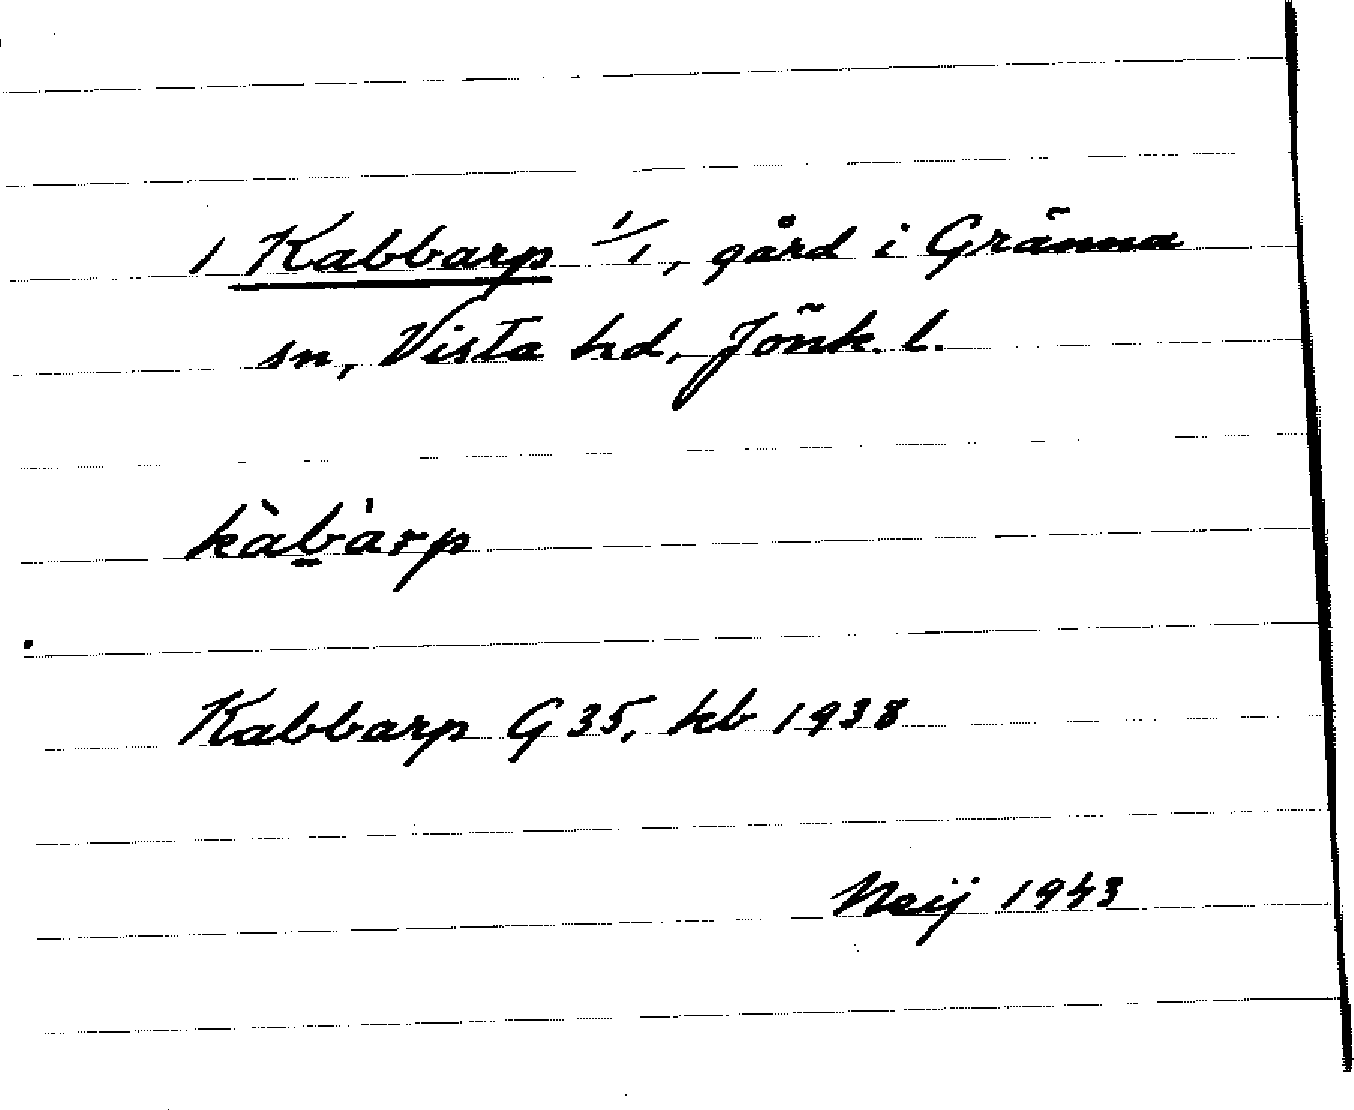 1 Kabbarp 1/1, gård i Gränna
sn, Vista hd, Jönk. l.
kàb̲àrp
Kabbarp G 35, kb 1938
Neij 1943